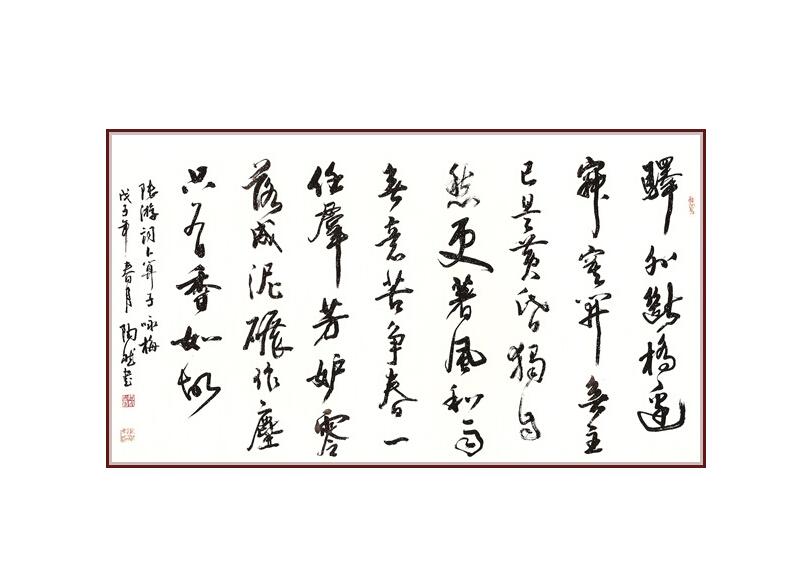 驛外斷橋邊
寂寞開無主
已是黄昏獨自
愁更著風和雨
無意苦争春一
任羣芳妒零
落成泥碾作塵
只有香如故
陸游詞卜算子咏梅
戊子年春月陶然書